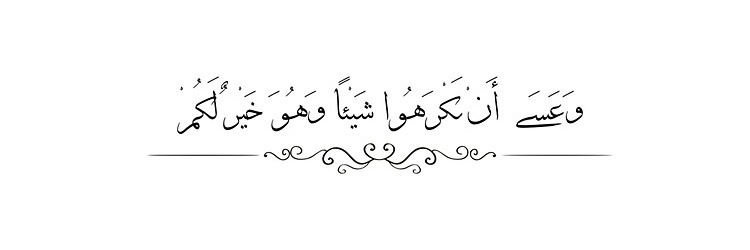 وَعَسَىٰ أَن تَكْرَهُوا شَيْئًا وَهُوَ خَيْرٌ لَّكُمْ